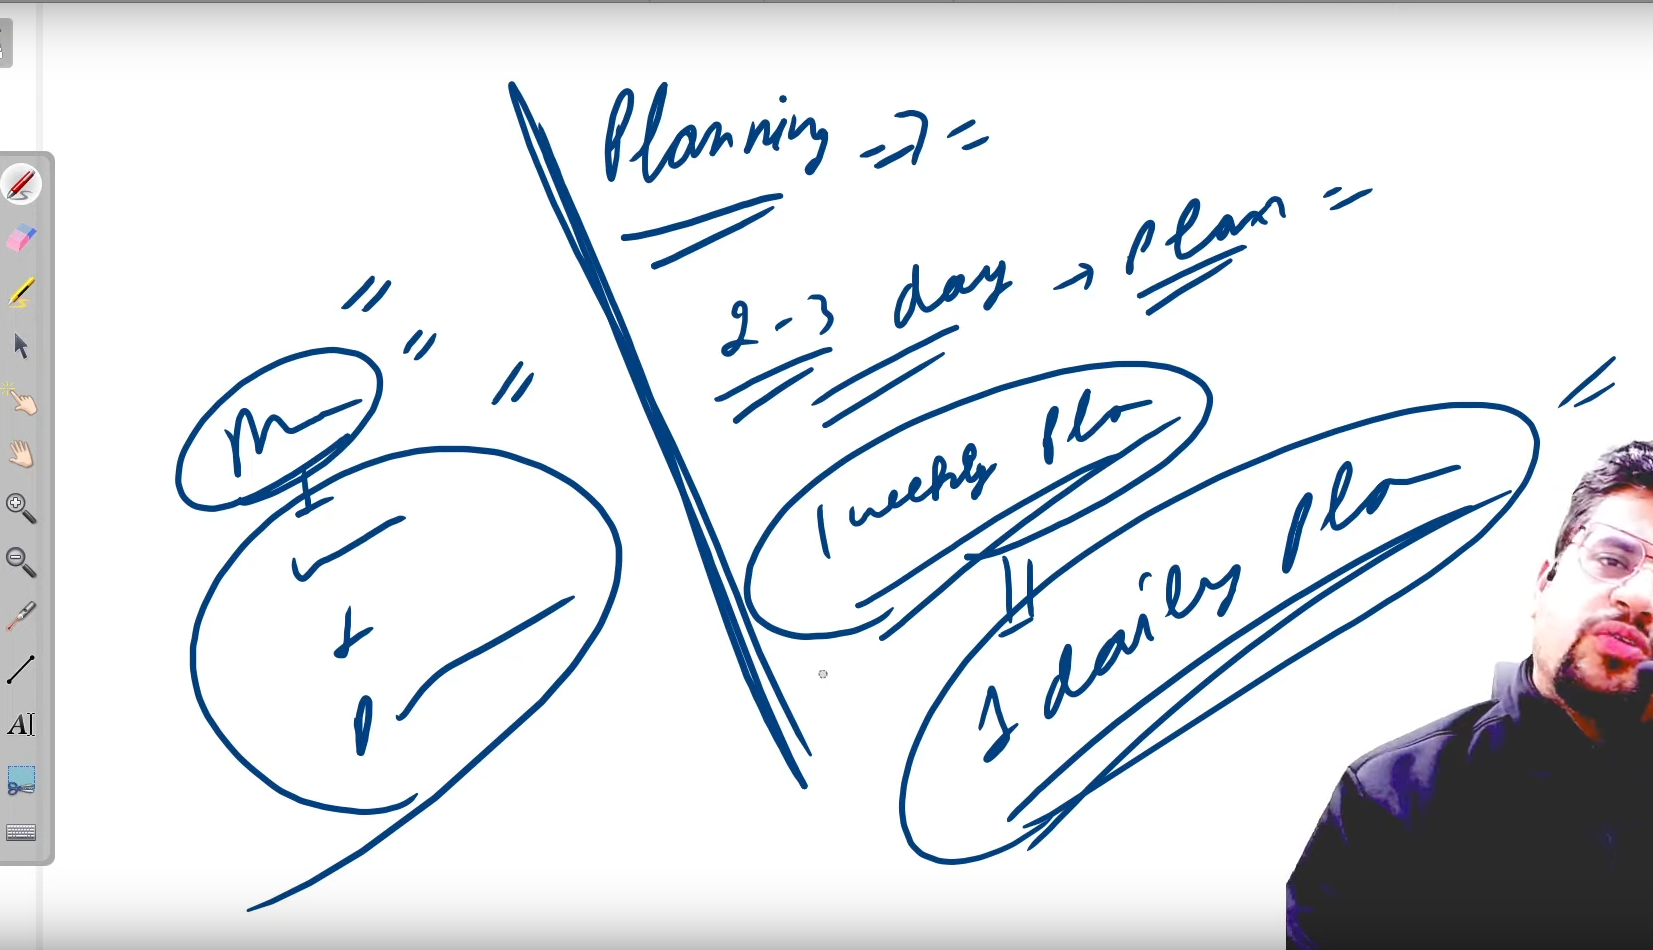 Planning =>
2-3 day → Plan =
M
1 weekly Pla
I
1 daily Pla
I
P
AI